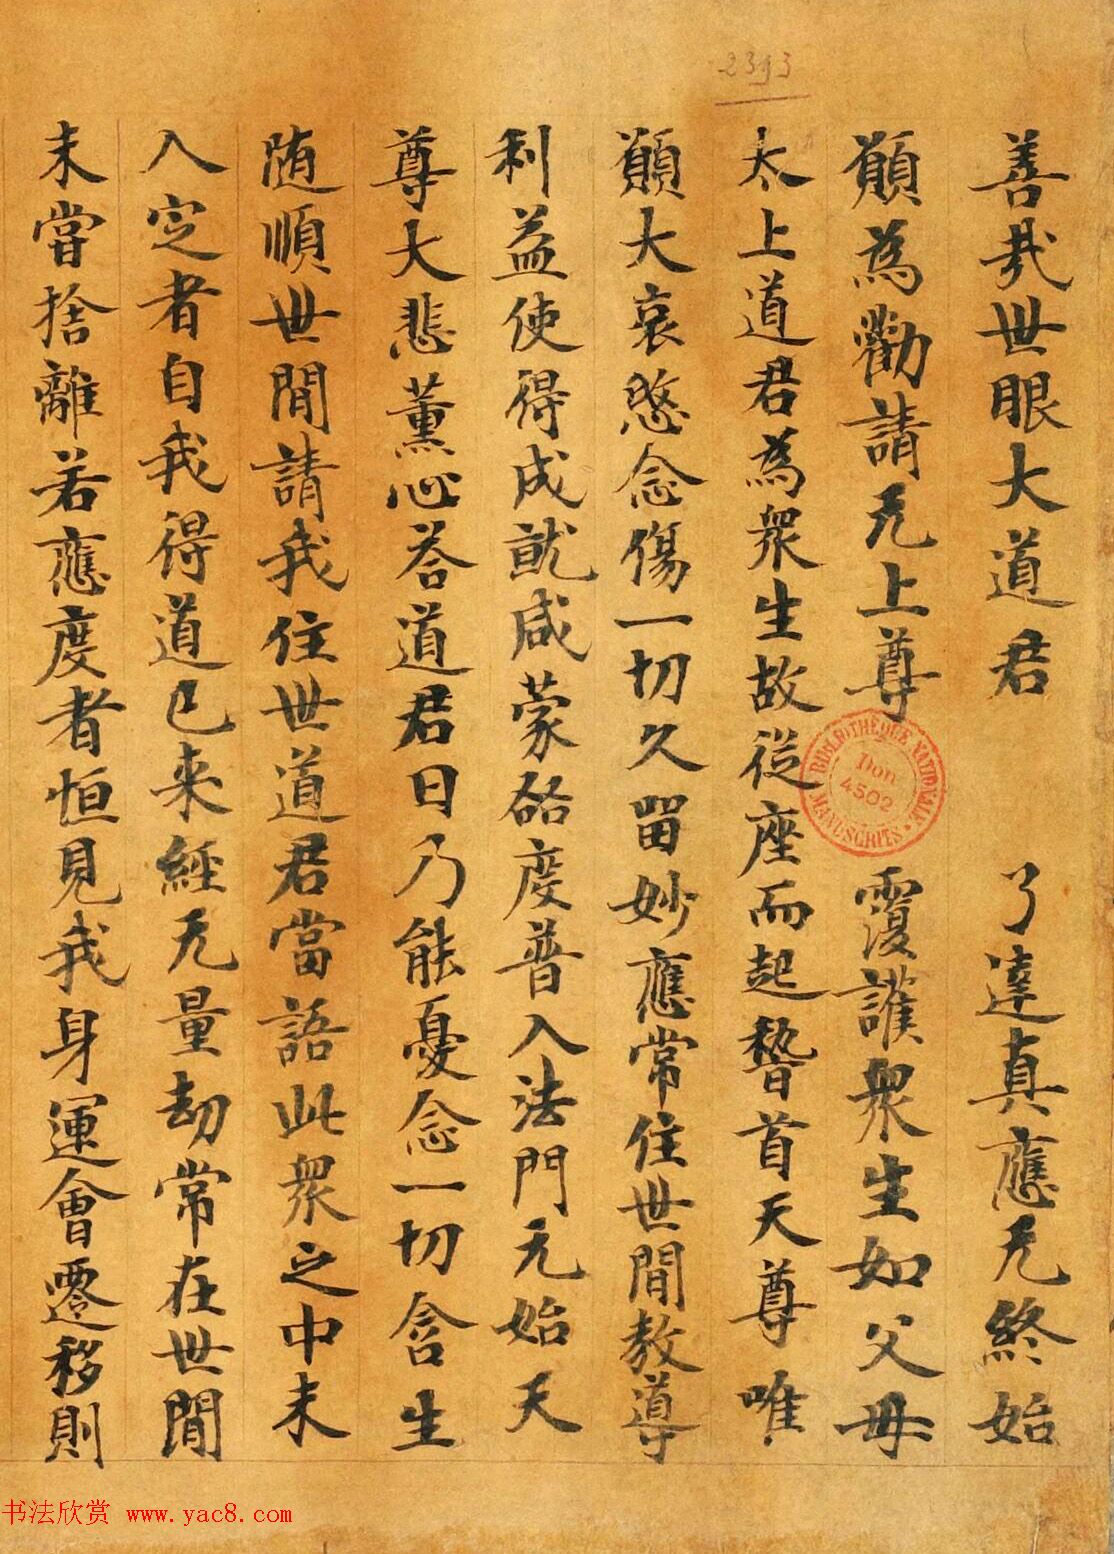 2393
善哉世眼大道君　了達真應无終始
願為勸請无上尊　覆護衆生如父母
太上道君為衆生故從座而起稽首天尊唯
願大哀愍念傷一切久留妙應常住世間教導
利益使得成就咸蒙啓度普入法門元始天
尊大悲薰心荅道君曰乃能憂念一切含生
随順世間請我住世道君當語此衆之中未
入定者自我得道已來經无量劫常在世間
未甞捨離若應度者恒見我身運會遷移則
BIBLIOTHÈQUE NATIONALE MANUSCRITS
Don
4502
书法欣赏 www.yac8.com